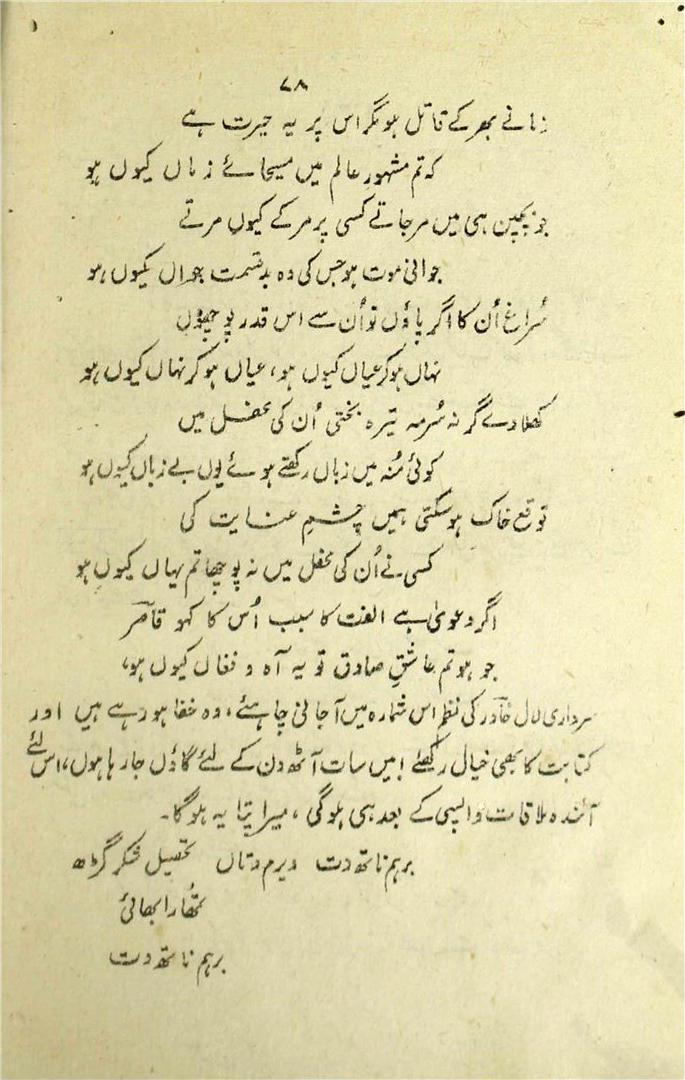 ۷۸
زمانے بھر کے قاتل ہو مگر اس پر یہ حیرت ہے
کہ تم مشہورِ عالم میں مسیحائے زماں کیوں ہو
جو بچپن ہی میں مر جاتے کسی پر مر کے کیوں مرتے
جوانی موت ہو جس کی وہ بدقسمت جواں کیوں ہو
سُراغ اُن کا اگر پاؤں تو اُن سے اس قدر پوچھوں
نہاں ہو کر عیاں کیوں ہو، عیاں ہو کر نہاں کیوں ہو
کھلا دے گر نہ سُرمہ تیرہ بختی اُن کی محفل میں
کوئی مُنہ میں زباں رکھتے ہوئے یوں بے زباں کیوں ہو
توقع خاک ہو سکتی ہمیں چشمِ عنایت کی
کسی نے اُن کی محفل میں نہ پوچھا تم یہاں کیوں ہو
اگر دعویٰ ہے الفت کا سبب اُس کا کہو قاصر
جو ہو تم عاشقِ صادق تو یہ آہ و فغاں کیوں ہو،
سرداری لال خاور کی نظم اس شمارہ میں آجانی چاہئے، وہ خفا ہو رہے ہیں اور
کتابت کا بھی خیال رکھئے! میں سات آٹھ دن کے لئے گاؤں جا رہا ہوں، اس لئے
آئندہ ملاقات واپسی کے بعد ہی ہوگی، میرا پتا یہ ہوگا۔
برہم ناتھ دت ویرم دتاں تحصیل شکر گڑھ
تمھارا بھائی
برہم ناتھ دت